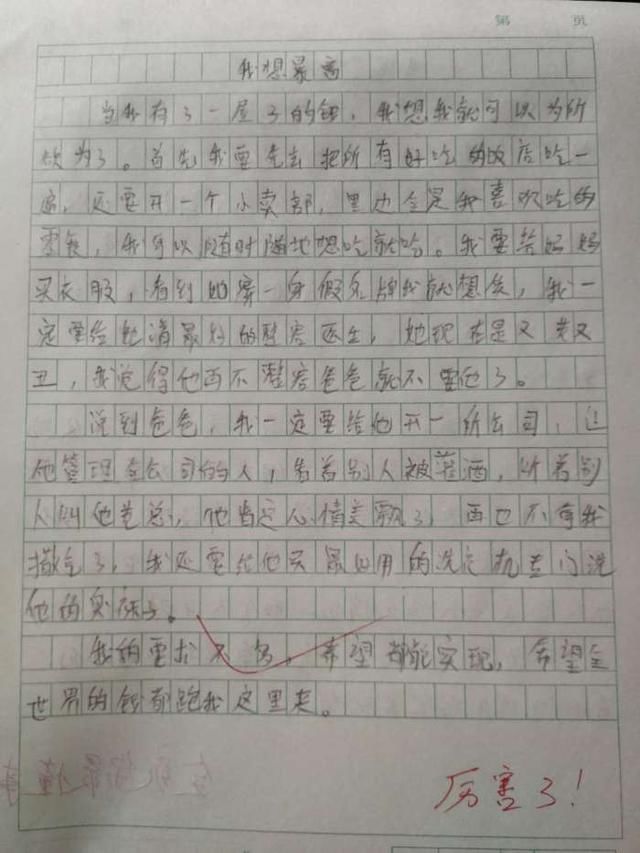 第 页
我想最富
当我有了一屋子的钱，我想我就可以为所
欲为了。首先我要先去把所有好吃的饭店吃一
遍，还要开一个小卖部，里边全是我喜欢吃的
零食，我可以随时随地想吃就吃。我要给妈妈
买衣服，看到她穿一身假名牌我就想笑，我一
定要给她请最好的整容医生，她现在是又老又
丑，我觉得他再不整容爸爸就不要他了。
说到爸爸，我一定要给他开一所公司，让
他管理全公司的人，看着别人被灌酒，听着别
人叫他总，他肯定心情美飘了，再也不拿我
撒气了，我还要给他买最好用的洗衣机专门洗
他的臭袜子。
我的要求不多，希望都能实现，希望全
世界的钱都跑我这里来。
厉害了！